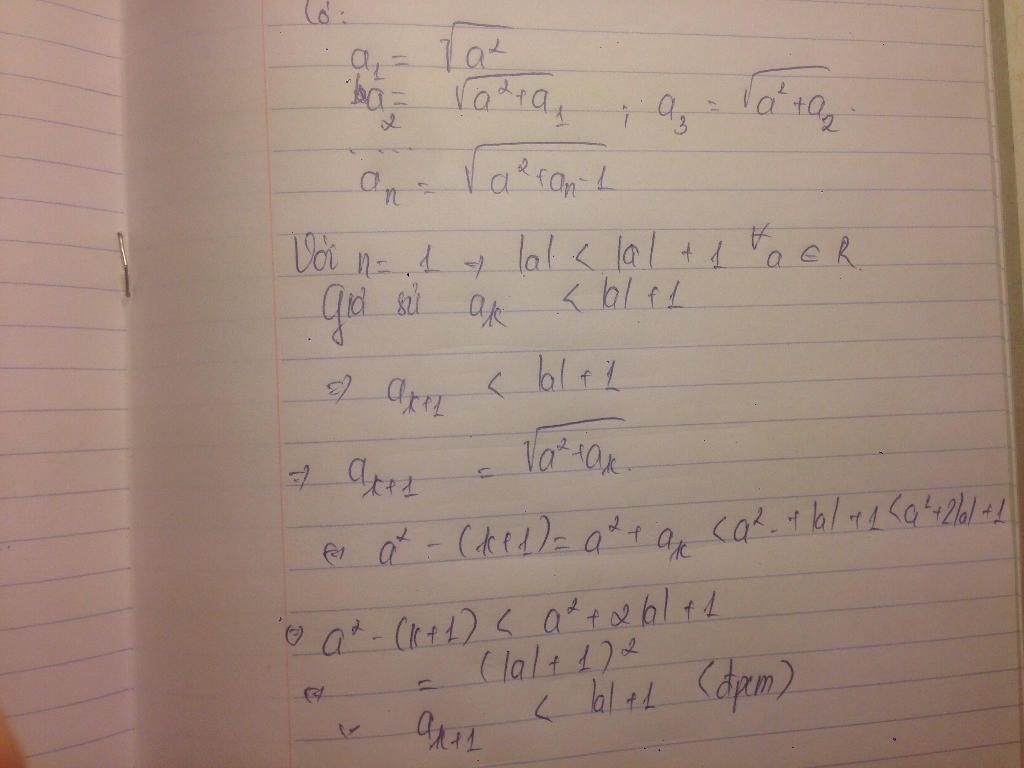 Có:
a₁ = √a²
a₂ = √(a²+a₁) ; a₃ = √(a²+a₂).
.......
aₙ = √(a²+aₙ-1)
Với n = 1 → |a| < |a| + 1 ∀a ∈ R
Giả sử aₖ < |a| + 1
⇒ aₖ₊₁ < |a| + 1
⇒ aₖ₊₁ = √(a²+aₖ).
⇔ a² - (k+1) = a² + aₖ < a² + |a| + 1 < a²+2|a|+1
⇔ a² - (k+1) < a² + 2|a| + 1
⇔ = (|a| + 1)²
aₖ₊₁ < |a| + 1 (đpcm)